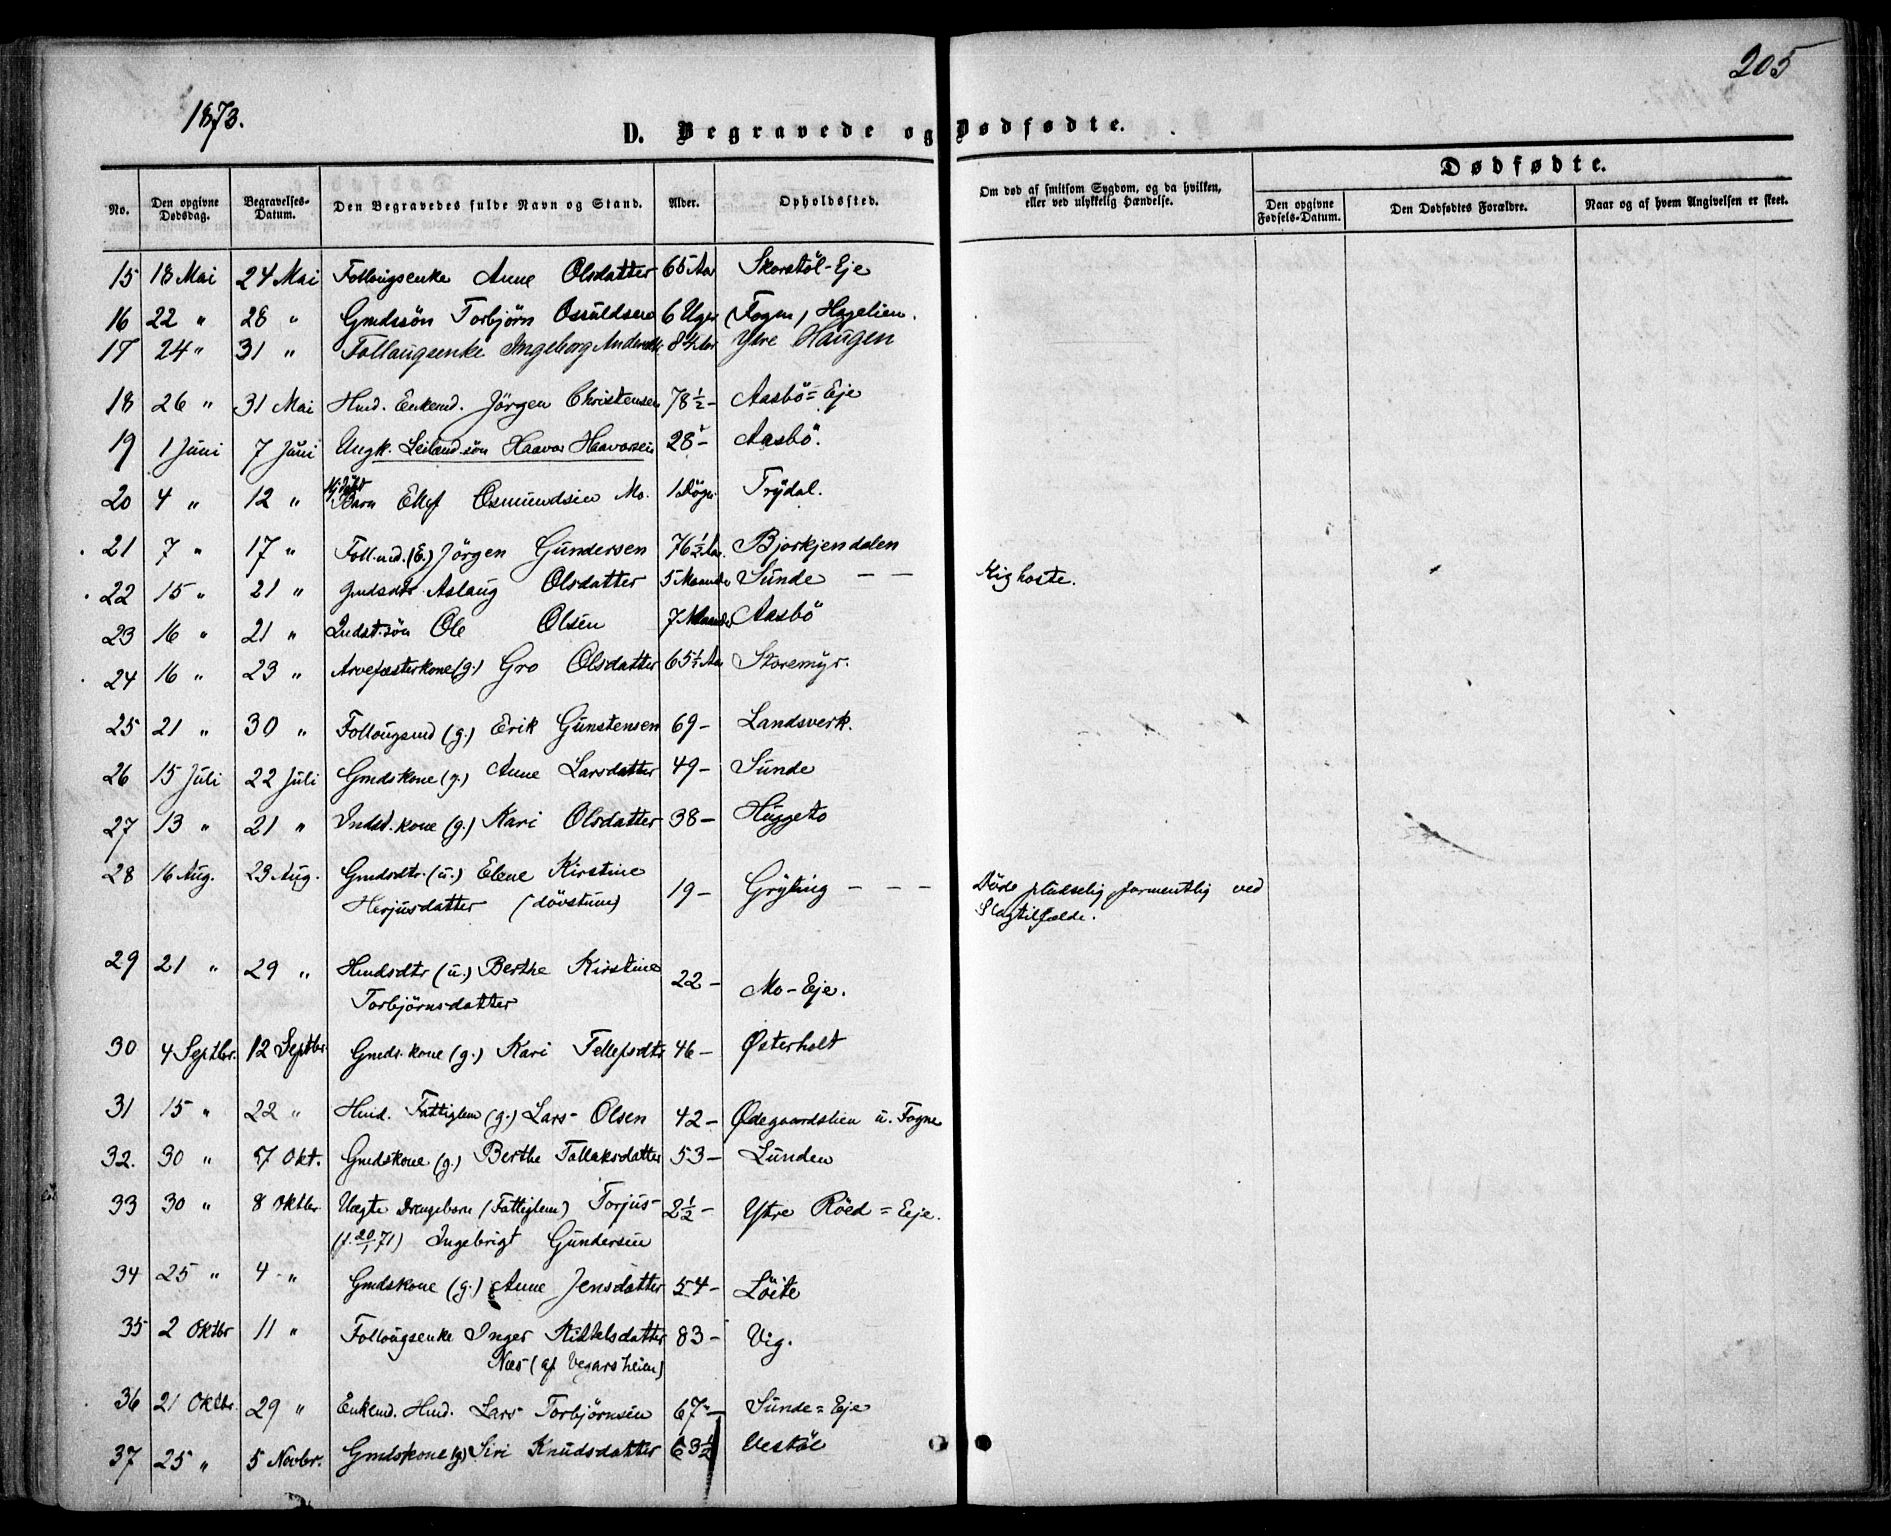 205
1873.
D. Begravede og Dødfødte.
No. Den opgivne Dødsdag. Begravelses-Datum. Den Begravedes fulde Navn og Stand. Alder. Opholdssted. Om død af smitsom Sygdom, og da hvilken, eller ved ulykkelig Hændelse. Dødfødte.
Den opgivne Fødsels-Datum. Den Dødfødtes Forældre. Naar og af hvem Angivelsen er skeet.
15 18 Mai 24 Mai Follougsenke Anne Olsdatter 65 Aar Skorstöl-Eje
16 22 " 28 " Gmdssön Torbjörn Osuldsen 6 Uger (Fogne) Hagelien.
17 24 " 31 " Follaugsenke Ingeborg Andersdtr 84 Aar Ytre Haugen
18 26 " 31 Mai Hmd. Enkemd. Jörgen Christensen 78 1/2 - Aasbö = Eje
19 1 Juni 7 Juni Ungk. Leilænd.sön Haavor Haavorsen 28 - Aasbö.
20 4 " 12 " Hj.döbt Barn Ellef Osmundsen Mo. 1 Dögn Trydal.
21 7 " 17 " Foll.md. (E.) Jörgen Gundersen 76 1/2 Aar. Bjorkjendalen
22 15 " 21 " Gmdsdtr Aslaug Olsdatter 5 Maaneder Sunde - - Kighoste.
23 16 " 21 " Indst.sön Ole Olsen 7 Maaneder Aasbö
24 16 " 23 " Arvefæsterkone (g.) Gro Olsdatter 65 1/2 Aar Storemyr.
25 21 " 30 " Follougsmd (g.) Erik Gunstensen 69 - Landsverk.
26 15 Juli 22 Juli Gmdskone (g.) Anne Larsdatter 49 - Sunde
27 13 " 21 " Indst.kone (g.) Kari Olsdatter 38 - Huggeto
28 16 Aug. 23 Aug. Gmdsdtr. (u.) Elene Kirstine
Herjusdatter (dövstum) 19 - Gryting - - - Döde pludselig formentlig ved
Slagtilfælde.
29 21 " 29 " Hmdsdtr (u.) Berthe Kirstine
Torbjörnsdatter 22 - Mo-Eje.
30 4 Septbr. 12 Septbr Gmds.kone (g.) Kari Tellefsdtr 46 - Østerholt
31 15 " 22 " Hmd. Fattiglem (g.) Lars Olsen 42 - Ødegaardslien u. Fogne
32. 30 " 7 Okt. Gmdskone (g.) Berthe Tallaksdatter 53 - Lunden
33 30 " 8 Oktbr Uægte Drengebarn (Fattiglem) Torjus
(f. 20/1 71) Ingebrigt Gundersen 2 1/2 - Ytre Röed = Eje.
34 25 " 4 " Gmdskone (g.) Anne Jensdatter 54 - Löite
35 2 Oktbr 11 " Follougsenke Inger Kittelsdatter 83 - Vig.
Næs (af Vegarsheien)
36 21 Oktbr. 29 " Enkemd. Hmd. Lars Torbjörnsen 67 - Sunde = Eje
37 25 " 5 Novbr. Gmdskone (g) Siri Knudsdatter 63 1/2 Uestöl